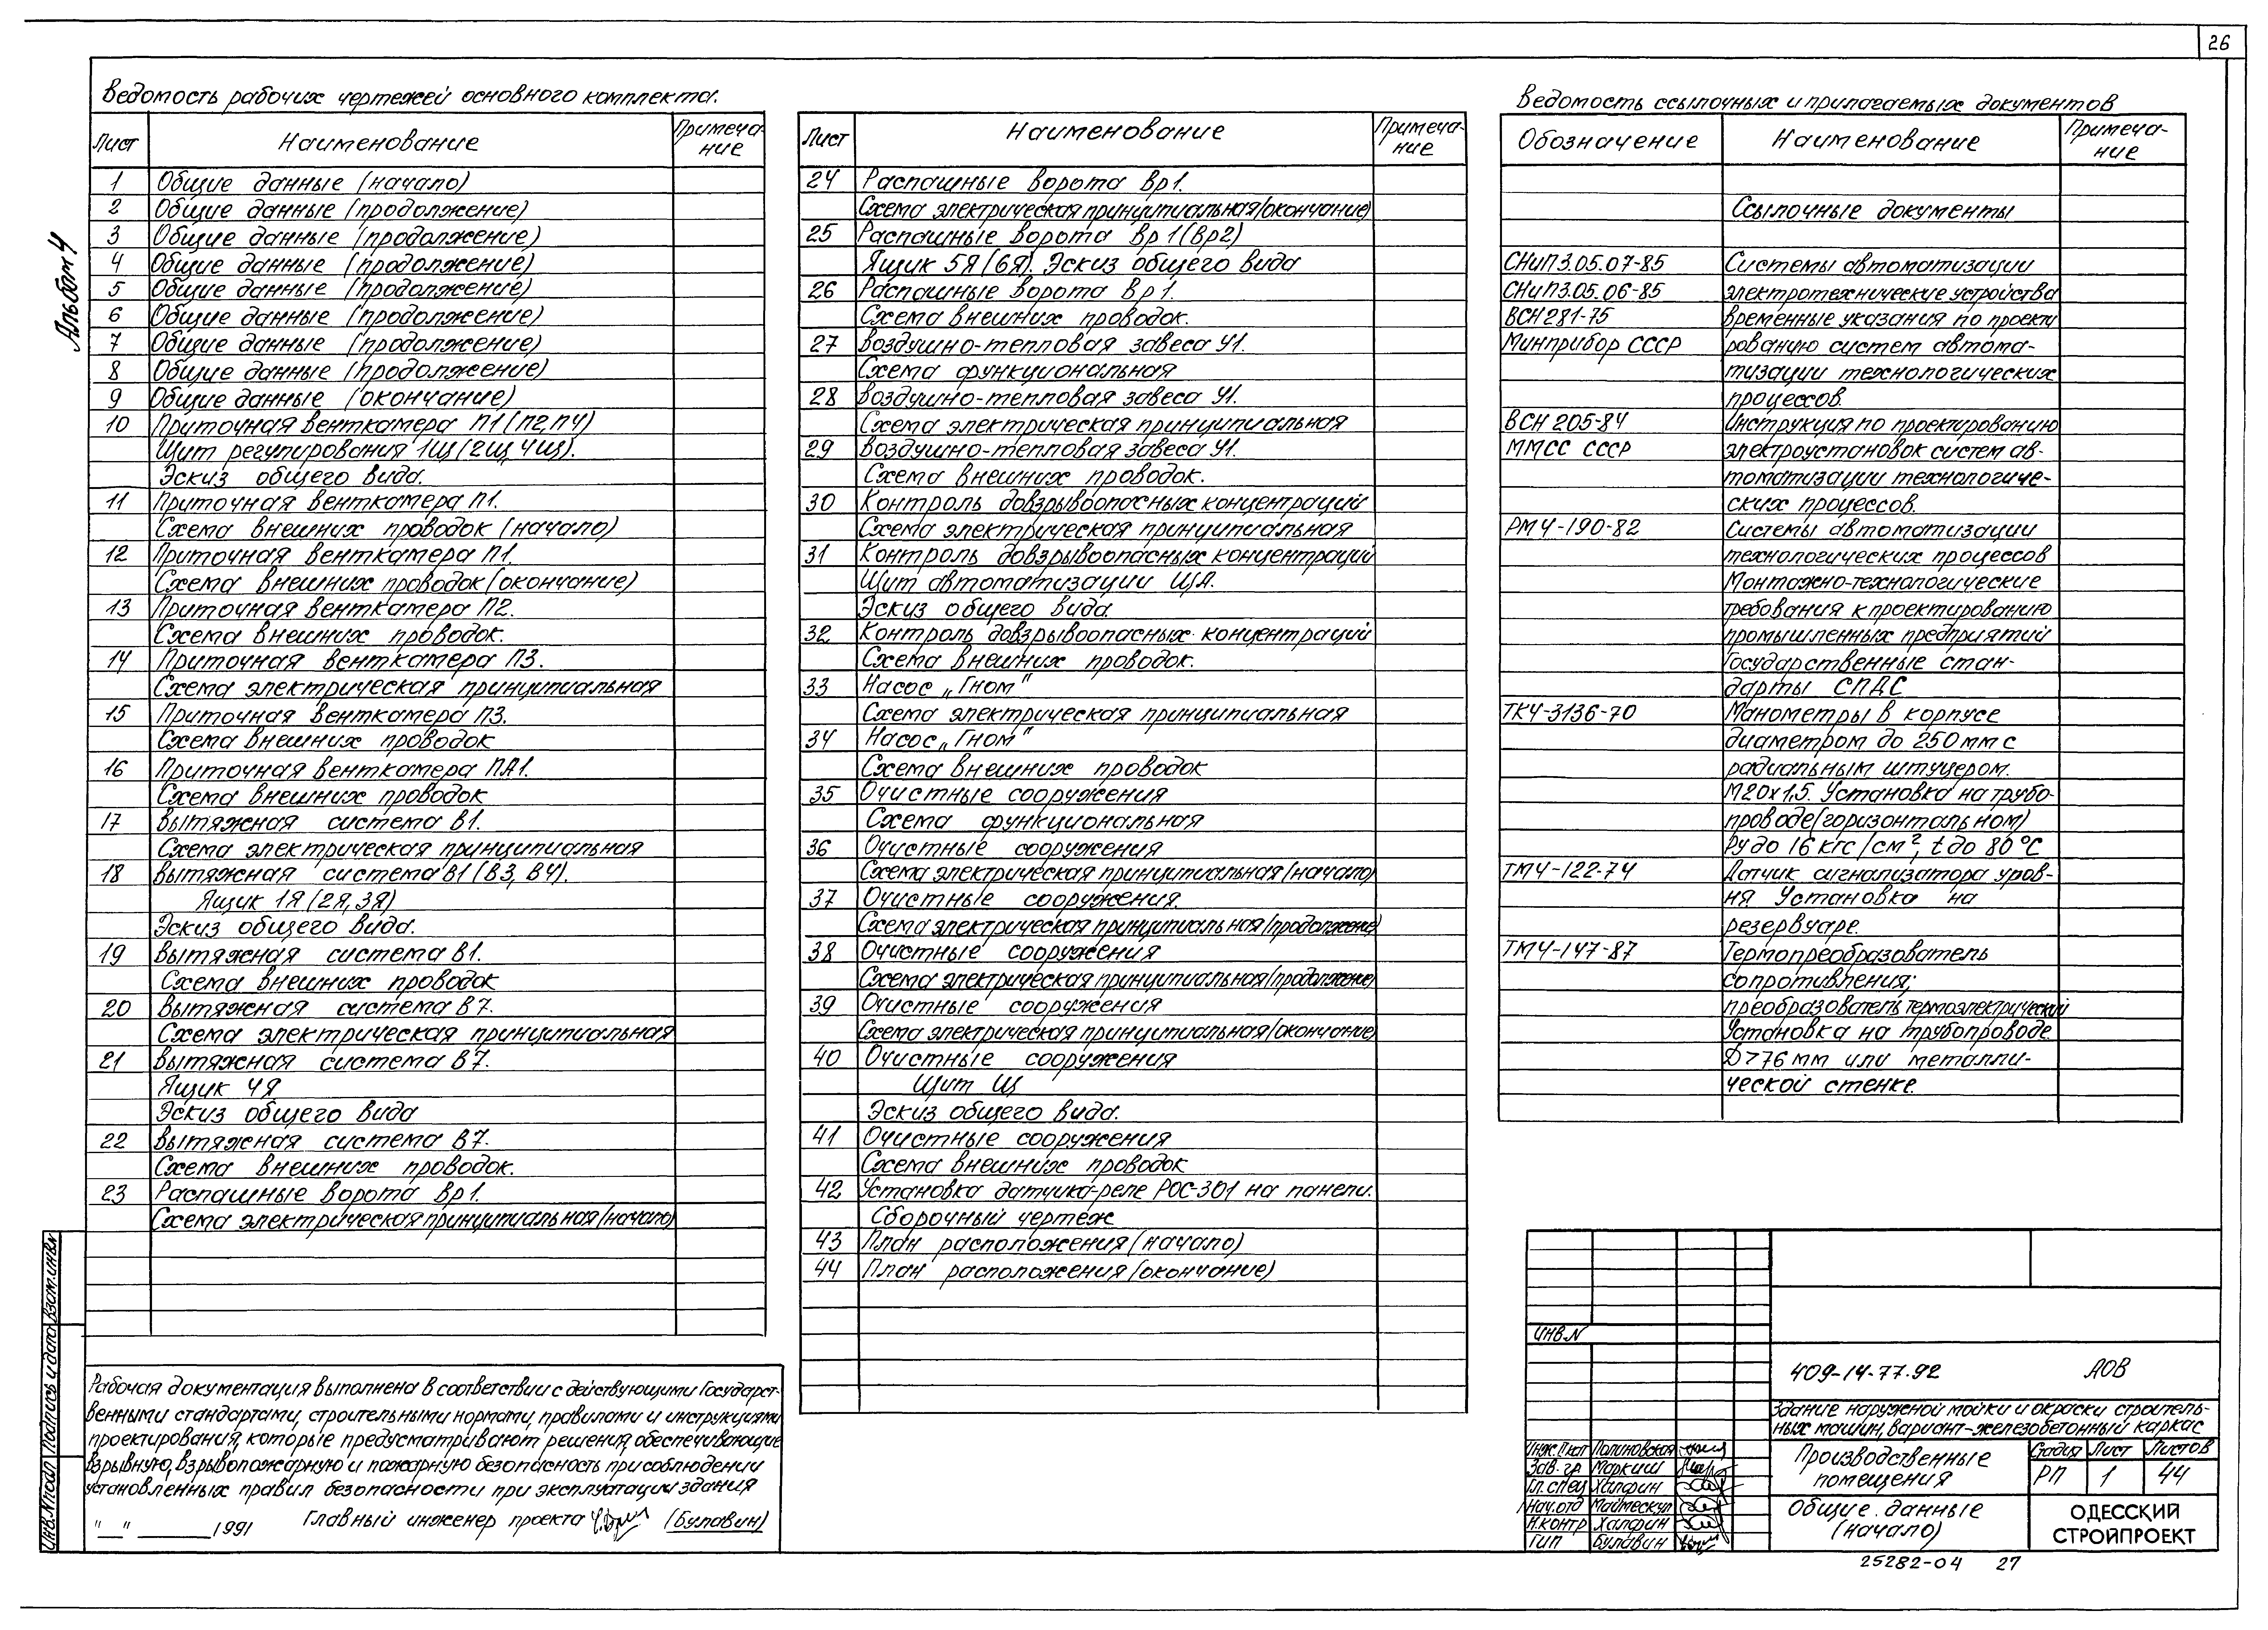 26
Альбом 4
Ведомость рабочих чертежей основного комплекта.
Лист Наименование Примеча-
ние
1 Общие данные (начало)
2 Общие данные (продолжение)
3 Общие данные (продолжение)
4 Общие данные (продолжение)
5 Общие данные (продолжение)
6 Общие данные (продолжение)
7 Общие данные (продолжение)
8 Общие данные (продолжение)
9 Общие данные (окончание)
10 Приточная венткамера П1 (П2, П4)
Щит регулирования 1Щ (2Щ, 4Щ).
Эскиз общего вида.
11 Приточная венткамера П1.
Схема внешних проводок (начало)
12 Приточная венткамера П1.
Схема внешних проводок (окончание)
13 Приточная венткамера П2.
Схема внешних проводок.
14 Приточная венткамера П3.
Схема электрическая принципиальная
15 Приточная венткамера П3.
Схема внешних проводок
16 Приточная венткамера ПА1.
Схема внешних проводок
17 Вытяжная система В1.
Схема электрическая принципиальная
18 Вытяжная система В1 (В3, В4).
Ящик 1Я (2Я, 3Я)
Эскиз общего вида.
19 Вытяжная система В1.
Схема внешних проводок
20 Вытяжная система В7.
Схема электрическая принципиальная
21 Вытяжная система В7.
Ящик 4Я
Эскиз общего вида
22 Вытяжная система В7.
Схема внешних проводок.
23 Распашные ворота Вр1.
Схема электрическая принципиальная (начало)
Лист Наименование Примеча-
ние
24 Распашные ворота Вр1.
Схема электрическая принципиальная (окончание)
25 Распашные ворота Вр1 (Вр2)
Ящик 5Я (6Я). Эскиз общего вида
26 Распашные ворота Вр1.
Схема внешних проводок.
27 Воздушно-тепловая завеса У1.
Схема функциональная
28 Воздушно-тепловая завеса У1.
Схема электрическая принципиальная
29 Воздушно-тепловая завеса У1.
Схема внешних проводок.
30 Контроль довзрывоопасных концентраций
Схема электрическая принципиальная
31 Контроль довзрывоопасных концентраций
Щит автоматизации ЩА.
Эскиз общего вида
32 Контроль довзрывоопасных концентраций
Схема внешних проводок.
33 Насос „Гном"
Схема электрическая принципиальная
34 Насос „Гном"
Схема внешних проводок
35 Очистные сооружения
Схема функциональная
36 Очистные сооружения
Схема электрическая принципиальная (начало)
37 Очистные сооружения.
Схема электрическая принципиальная (продолжение)
38 Очистные сооружения
Схема электрическая принципиальная (продолжение)
39 Очистные сооружения
Схема электрическая принципиальная (окончание)
40 Очистные сооружения
Щит Щ
Эскиз общего вида.
41 Очистные сооружения
Схема внешних проводок
42 Установка датчика-реле РОС-301 на панели.
Сборочный чертеж
43 План расположения (начало)
44 План расположения (окончание)
Ведомость ссылочных и прилагаемых документов
Обозначение Наименование Примеча-
ние
Ссылочные документы
СНиП 3.05.07-85 Системы автоматизации
СНиП 3.05.06-85 Электротехнические устройства
ВСН 281-75 Временные указания по проекти
Минприбор СССР рованию систем автома-
тизации технологических
процессов.
ВСН 205-84 Инструкция по проектированию
ММСС СССР электроустановок систем ав-
томатизации технологиче-
ских процессов.
РМ4-190-82 Системы автоматизации
технологических процессов
Монтажно-технологические
требования к проектированию
промышленных предприятий
Государственные стан-
дарты СПДС
ТК4-3136-70 Манометры в корпусе
диаметром до 250 мм с
радиальным штуцером.
М20х1,5. Установка на трубо-
проводе (горизонтальном)
Ру до 16 кгс/см², t до 80°С
ТМ4-122-74 Датчик сигнализатора уров-
ня Установка на
резервуаре.
ТМ4-147-87 Термопреобразователь
сопротивления;
преобразователь термоэлектрический
Установка на трубопроводе.
D>76 мм или металли-
ческой стенке.
Рабочая документация выполнена в соответствии с действующими Государст-
венными стандартами, строительными нормами, правилами и инструкциями
проектирования, которые предусматривают решения, обеспечивающие
взрывную, взрывопожарную и пожарную безопасность при соблюдении
установленных правил безопасности при эксплуатации здания
"__" ______ 1991 Главный инженер проекта (Булавин)
Взам.инв.N
Подпись и дата
Инв.N подл
Инв.N
409-14-77.92 АОВ
Здание наружной мойки и окраски строитель-
ных машин, вариант-железобетонный каркас
Инж. I кат Полиновская
Зав. гр Маркиш
Гл. спец Халфин
Нач. отд Маймескул
Н.контр Халфин
ГИП Булавин
Производственные
помещения
Стадия Лист Листов
РП 1 44
Общие данные
(начало)
ОДЕССКИЙ
СТРОЙПРОЕКТ
25282-04 27